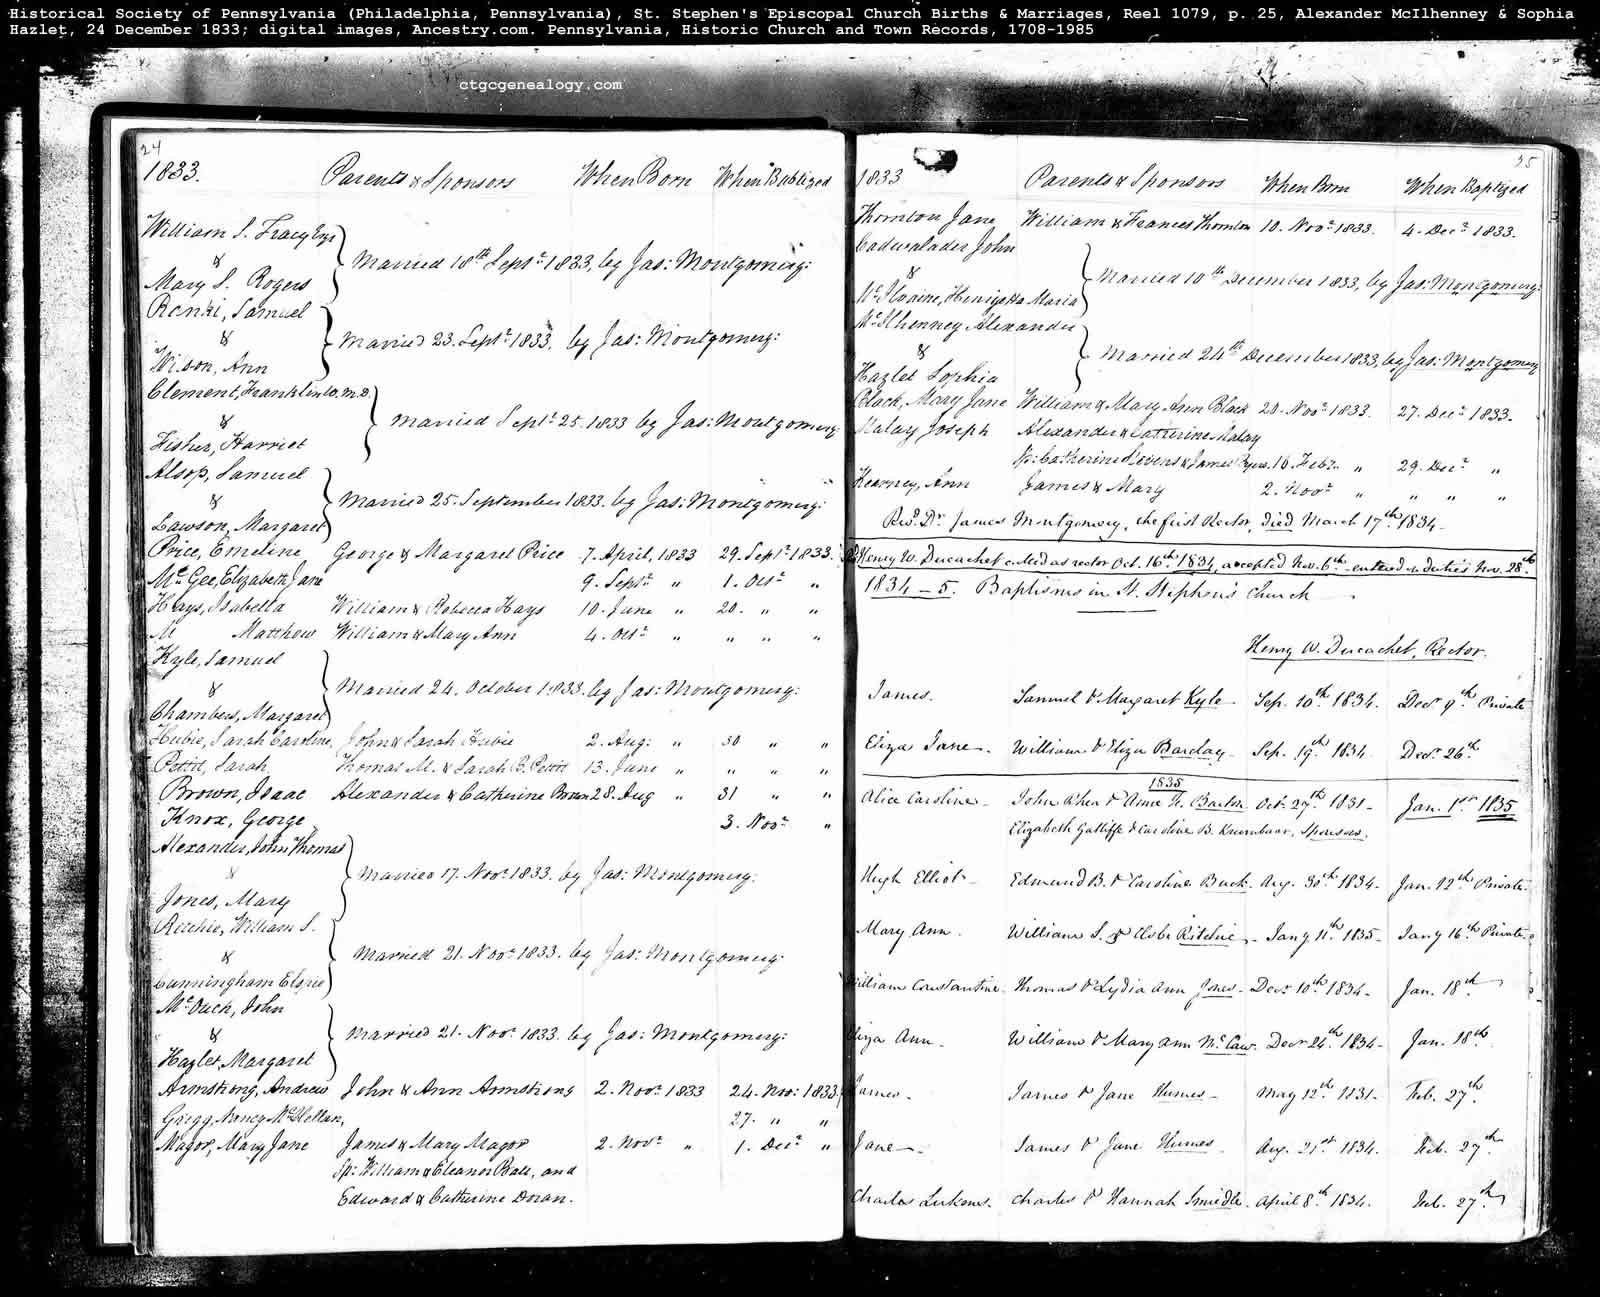 Historical Society of Pennsylvania (Philadelphia, Pennsylvania), St. Stephen's Episcopal Church Births & Marriages, Reel 1079, p. 25, Alexander McIlhenney & Sophia
Hazlet, 24 December 1833; digital images, Ancestry.com. Pennsylvania, Historic Church and Town Records, 1708-1985
ctgcgenealogy.com
24
1833. Parents & Sponsors When Born When Babtized
William S. Tracy Esqr
&
Married 18th Septr 1833, by Jas: Montgomery:
Mary S. Rogers
Samuel
&
Married 23. Septr 1833. by Jas: Montgomery:
Wilson, Ann
Clement, Franklin M.D.
&
Married Septr 25. 1833 by Jas: Montgomery
Fisher, Harriet
Alsop, Samuel
&
Married 25. September 1833. by Jas: Montgomery:
Lawson, Margaret
Price, Emeline George & Margaret Price 7. April, 1833 29. Septr 1833.
McGee, Elizabeth Jane 9. Septr " 1. Octr "
Hays, Isabella William & Rebecca Hays 10. June " 20. " "
M Matthew William & Mary Ann 4. Octr " " " "
Kyle, Samuel
&
Married 24. October 1833. by Jas: Montgomery:
Chambers, Margaret
Hubie, Sarah Caroline, John & Sarah Hubie 2. Aug: " 30 " "
Pettit, Sarah Thomas M. & Sarah B. Pettit 13. June " " " "
Brown, Isaac Alexander & Catherine Brown 28. Aug " 31 " "
Knox, George 3. Novr "
Alexander, John Thomas
&
Married 17. Novr 1833. by Jas: Montgomery:
Jones, Mary
Ritchie, William S.
&
Married 21. Novr 1833. by Jas: Montgomery:
Cunningham
McOuch, John
&
Married 21. Novr 1833. by Jas: Montgomery:
Hazlet, Margaret
Armstrong, Andrew John & Ann Armstrong 2. Novr 1833 24. Novr 1833.
Gregg, Nancy McClellan, 27. " "
Magor, Mary Jane James & Mary Magor 2. Novr " 1. Decr "
Sp: William & Eleanor Ball, and
Edward & Catherine Doran.
25
1833 Parents & Sponsors When Born When Baptized
Thornton Jane William & Frances Thornton 10. Novr 1833. 4. Decr 1833.
Cadwalader John
&
Married 10th December 1833, by Jas: Montgomery:
McIlvaine, Henrietta Maria
McIlhenney Alexander
&
Married 24th December 1833, by Jas: Montgomery
Hazlet Sophia
Black, Mary Jane William & Mary Ann Black 20. Novr 1833. 27. Decr 1833.
Malay Joseph Alexander & Catherine Malay
Sp: Catherine & James 16. Feb. " 29. Decr "
Kearney, Ann James & Mary 2. Novr " " " "
Revd. Dr. James Montgomery, the first Rector, died March 17th 1834.
Henry W. Ducachet called as rector Oct. 16th 1834, accepted Nov. 6th entered on duties Nov. 28th
1834 - 5. Baptisms in St. Stephen's Church
Henry W. Ducachet, Rector.
James. Samuel & Margaret Kyle Sep. 10th 1834. Decr 9th Private
Eliza Jane. William & Eliza Barclay Sep. 19th 1834. Decr 26th
1835
Alice Caroline John Rhea & Anne H. Barton Oct. 27th 1831 Jan. 1st 1835
Elizabeth Gatliffe & Caroline B. Krumbaar, Sponsors.
Hugh Elliot Edmund B. & Caroline Buck Aug. 30th 1834. Jan. 12th Private
Mary Ann. William S. & Ritchie Jany 11th 1835 Jany 16th Private
William Constantine Thomas & Lydia Ann Jones Decr 10th 1834 Jan. 18th
Eliza Ann. William & Mary Ann McCaw. Decr 24th 1834 Jan. 18th
James. James & Jane Humes May 12th 1831. Feb. 27th
Jane James & Jane Humes Aug. 21st 1834. Feb. 27th
Charles Lukens. Charles & Hannah Smedle April 8th 1834. Feb. 27th